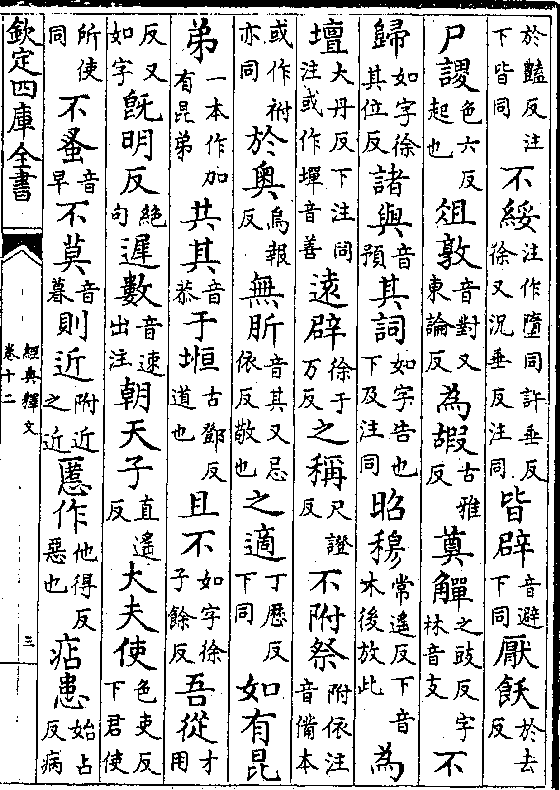 於豔反注下皆同不綏注作墮同許垂反徐又況垂反注同皆辟音避下同厭飫於去反
尸謖色六反起也俎敦音對又東論反為嘏古雅反奠觶之豉反字林音支不
歸如字徐其位反諸與音預其詞如字告也下及注同昭穆常遙反下音木後放此為
壇大丹反下注同注或作墠音善遠辟徐于万反之稱尺證反不附祭附依注音備本
或作祔亦同於奧烏報反無肵音其又忌依反敬也之適丁歷反下同如有昆
弟一本作加有昆弟共其音恭于堩古鄧反道也且不如字徐子餘反吾從才用
反又如字旣明反絕句遲數音速出注朝天子直遙反大夫使色吏反下君使
所使同不蚤音早不莫音暮則近附近之近慝作他得反惡也痁患始占反病
欽定四庫全書
經典釋文
卷十二
三